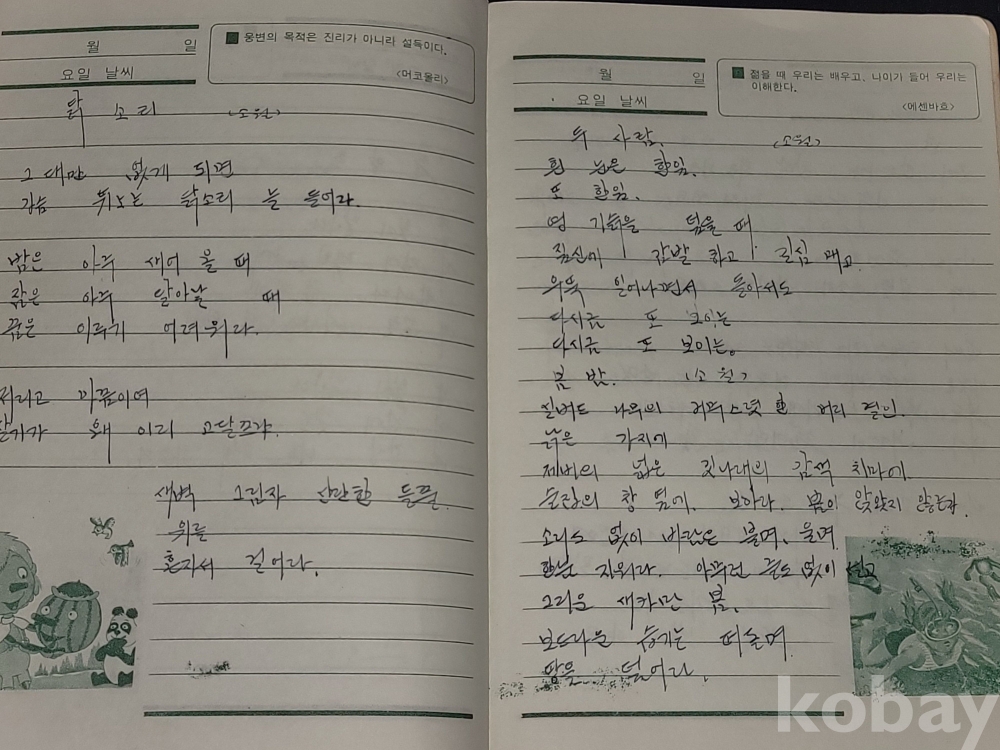 월 일
요일 날씨
웅변의 목적은 진리가 아니라 설득이다.
<머코올리>
닭 소리 <소월>
그대만 없게 되면
가슴 뛰노는 닭소리 늘 들어라.
밤은 아주 새어 올 때
잠은 아주 달아날 때
꿈은 이루기 어려워라.
저리고 아픔이여
살기가 왜 이리 고달프냐.
새벽 그림자 산란한 들풀
위를
혼자서 걸어라.
월 일
요일 날씨
젊을 때 우리는 배우고, 나이가 들어 우리는
이해한다.
<에센바흐>
두 사람. <소월>
흰 눈은 한잎.
또 한잎.
영 기슭을 덮을 때.
짚신에 감발 하고 길심 매고
우뚝 일어나면서 돌아서도
다시금 또 보이는
다시금 또 보이는.
봄 밤. <소월>
실버드 나무의 머리 결인
낡은 가지에
제비의 넓은 깃나래의 감색 치마에
술집의 창 옆에. 보아라. 봄이 앉았지 않는가.
소리도 없이 바람은 불며. 울며
한숨 지워라. 아무런 줄도 없이 섧고
그리운 새카만 봄.
보드라운 습기는 떠돌며
땅을 덮어라.
kobay